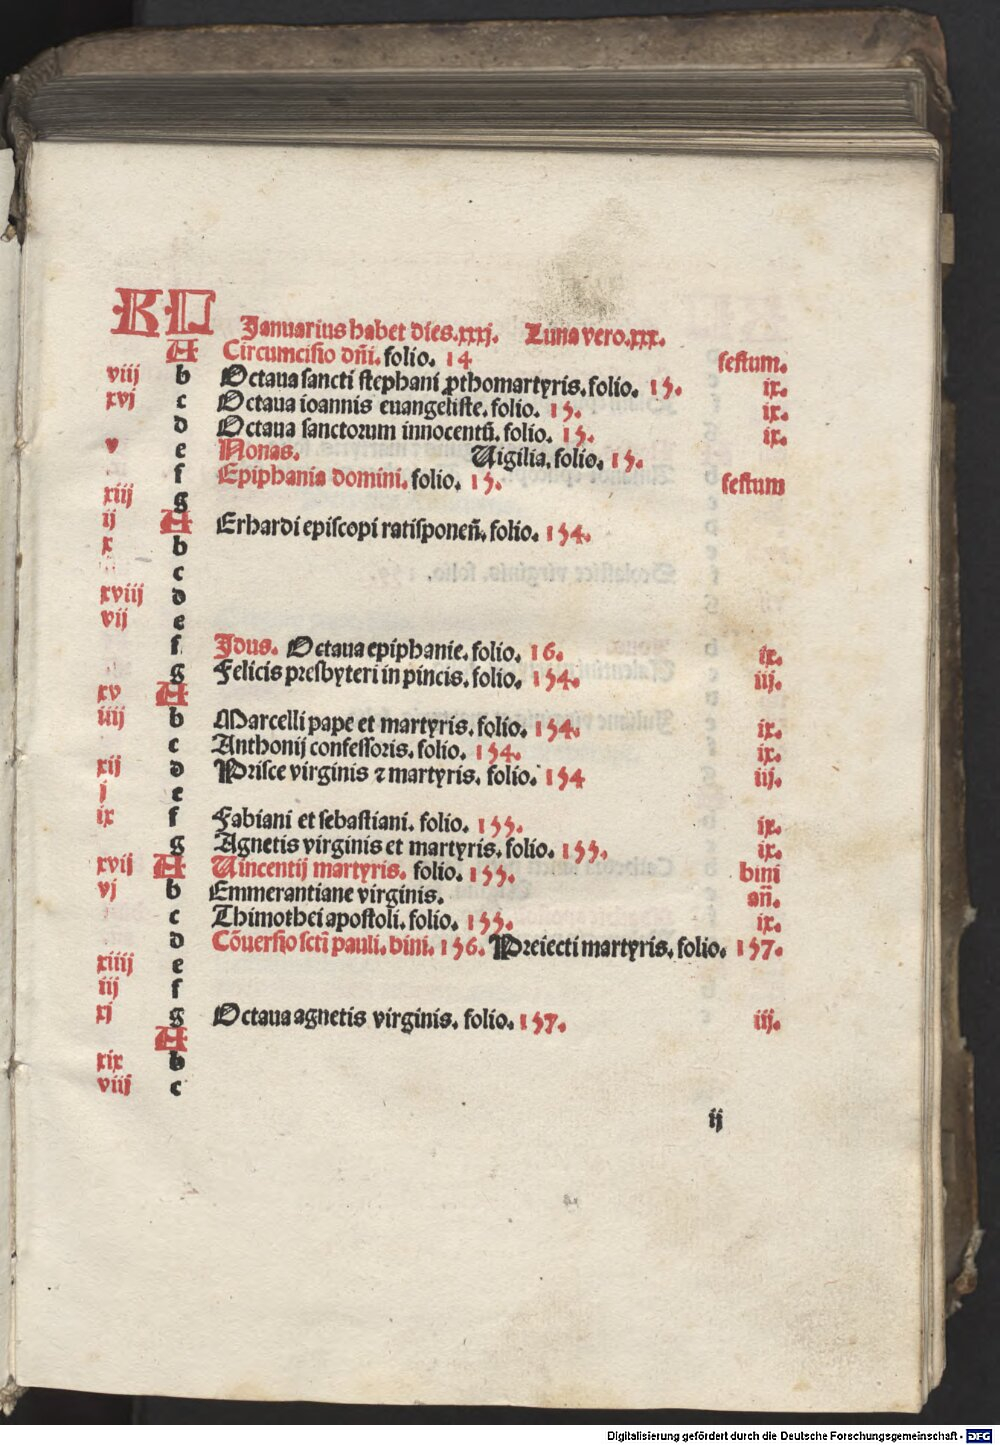 KL Januarius habet dies.xxxj. Luna vero.xxx.
A Circumcisio dñi. folio. 14 festum.
viij b Octaua sancti stephani ꝓthomartyris. folio. 15. ix.
xvj c Octaua ioannis euangeliste. folio. 15. ix.
d Octaua sanctorum innocentũ. folio. 15. ix.
v e Nonas. Uigilia. folio. 15.
f Epiphania domini. folio. 15. festum
xiij g
ij A Erhardi episcopi ratisponeñ. folio. 154.
x b
c
xviij d
vij e
f Idus. Octaua epiphanie. folio. 16. ix.
g Felicis presbyteri in pincis. folio. 154. iij.
xv A
iiij b Marcelli pape et martyris. folio. 154. ix.
c Anthonij confessoris. folio. 154. ix.
xij d Prisce virginis ⁊ martyris. folio. 154 iij.
j e
ix f Fabiani et sebastiani. folio. 155. ix.
g Agnetis virginis et martyris. folio. 155. ix.
xvij A Uincentij martyris. folio. 155. bini
vj b Emmerantiane virginis. añ.
c Thimothei apostoli. folio. 155. ix.
d Cõuersio scti pauli. bini. 156. Preiecti martyris. folio. 157.
xiiij e
iij f
xj g Octaua agnetis virginis. folio. 157. iij.
A
xix b
viij c
ij
Digitalisierung gefördert durch die Deutsche Forschungsgemeinschaft - DFG